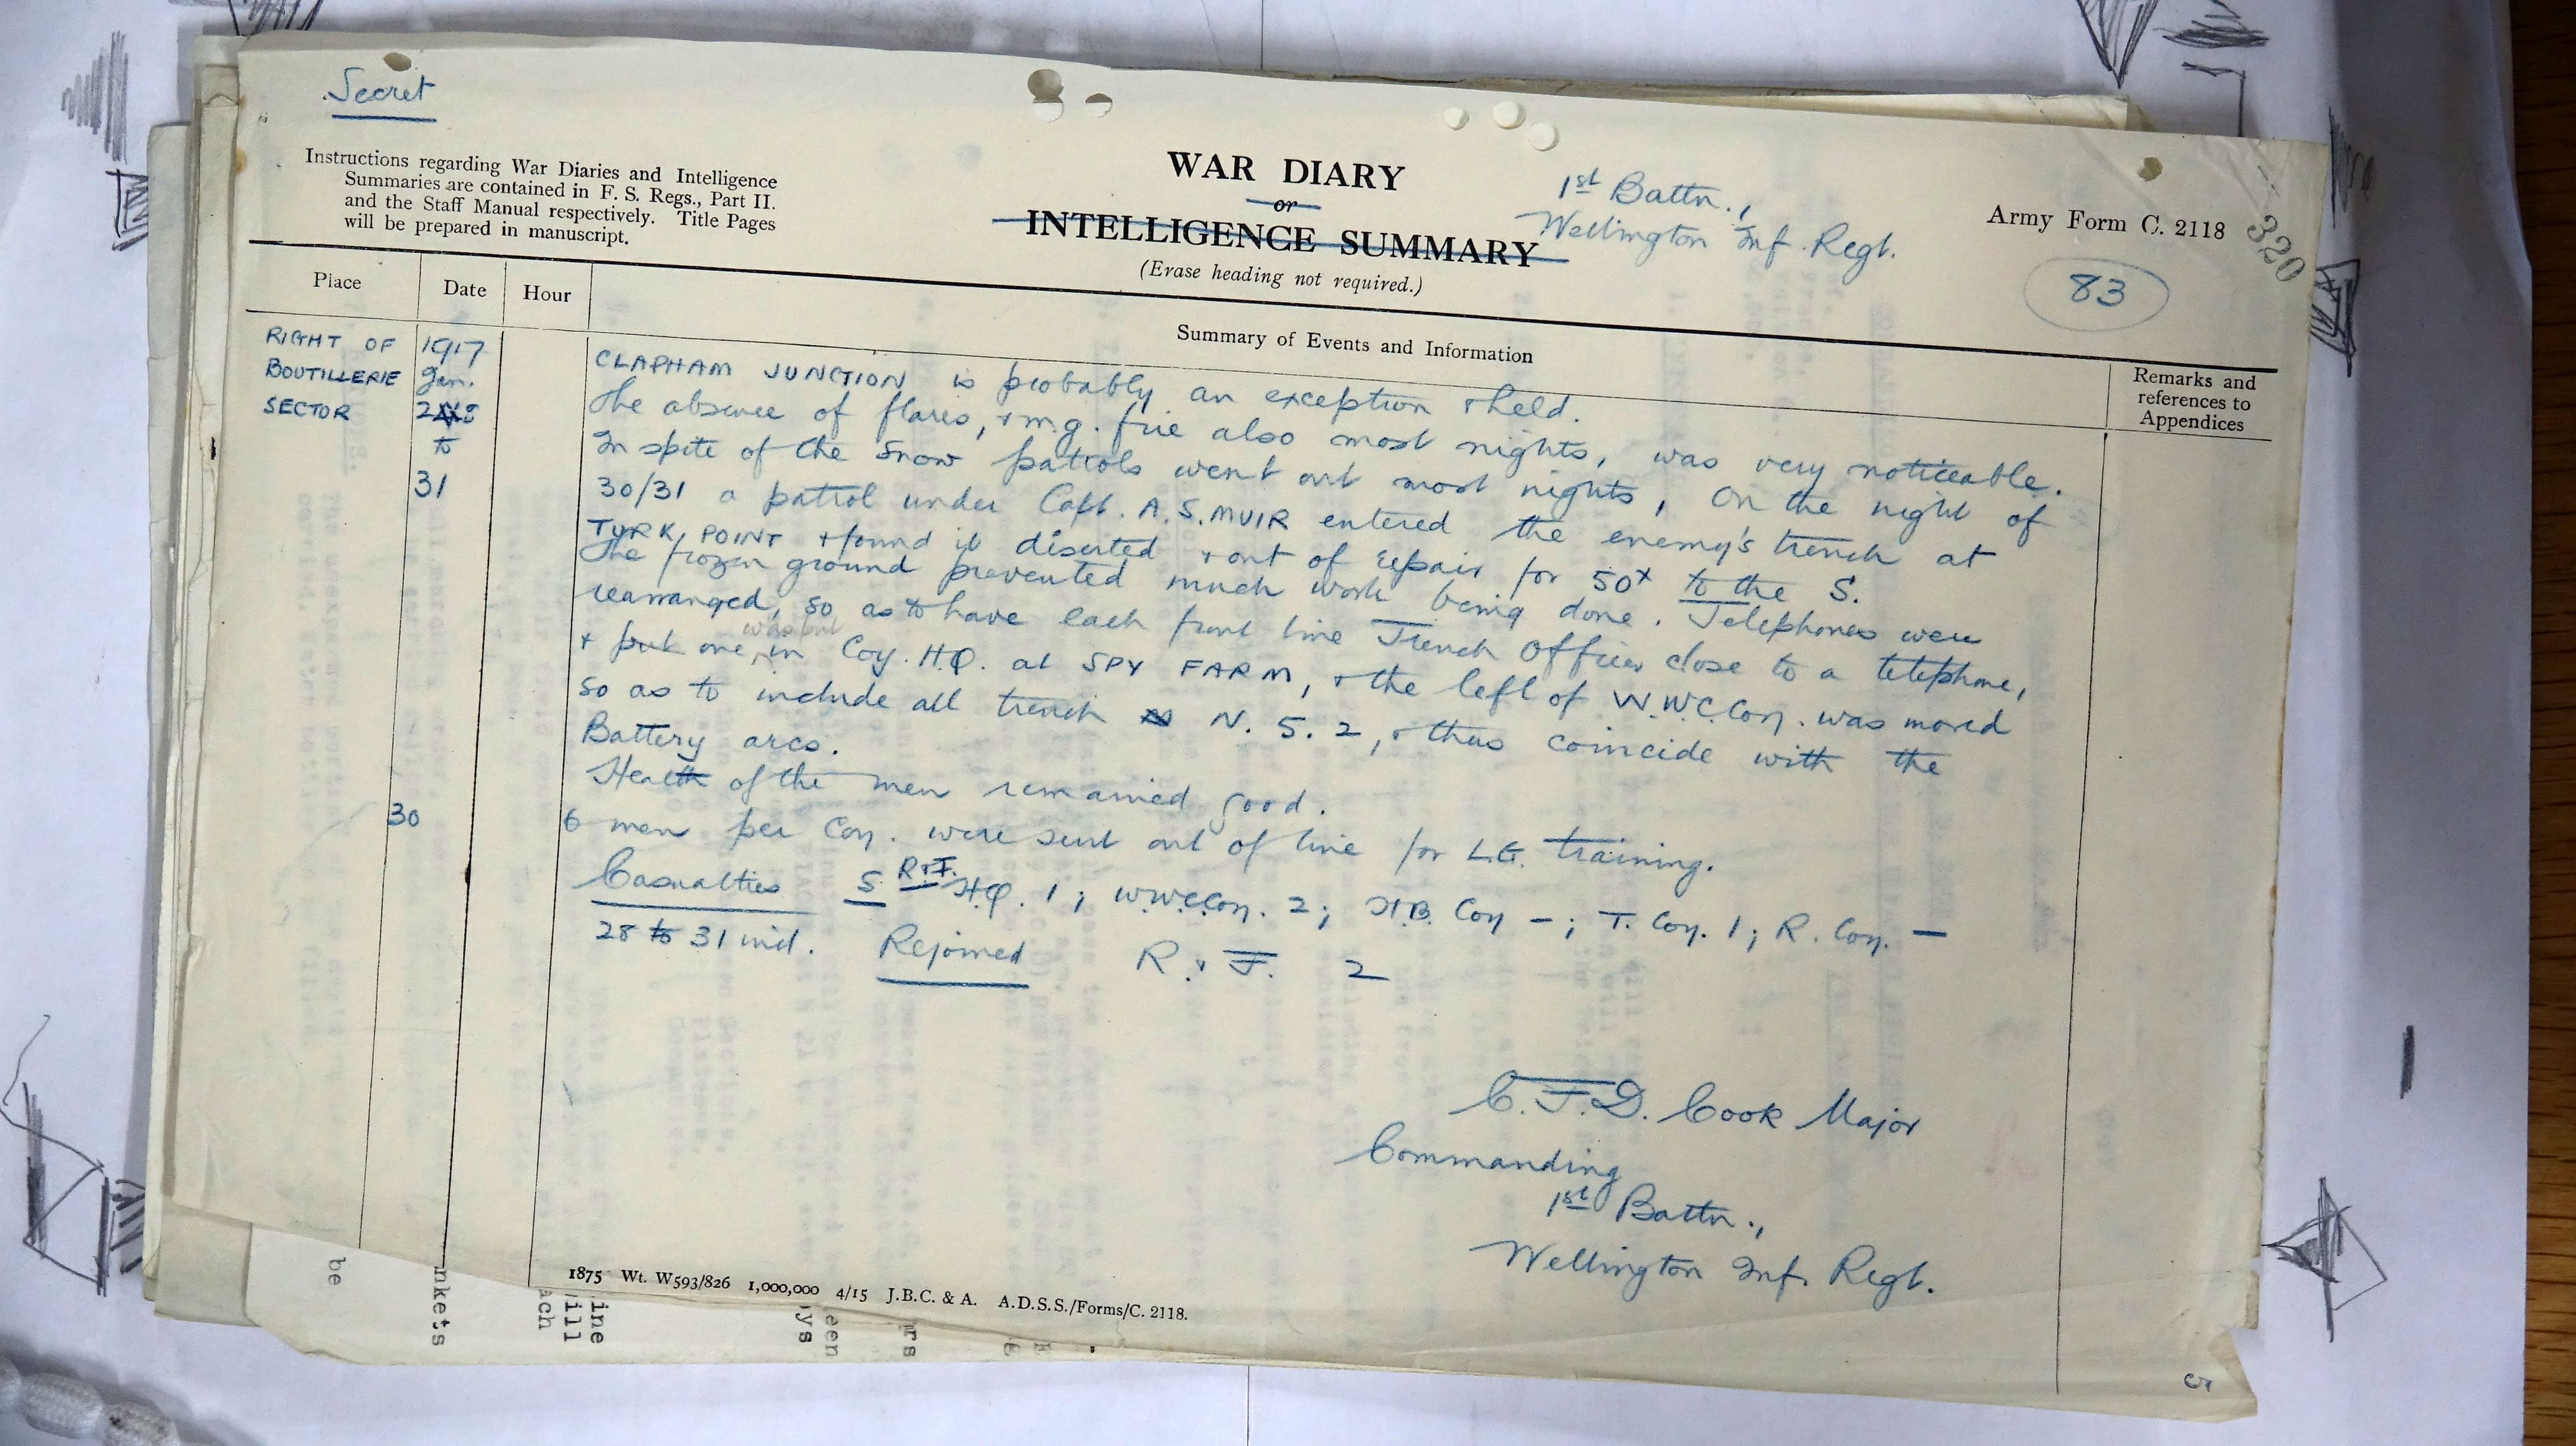 Secret
Instructions regarding War Diaries and Intelligence
Summaries are contained in F. S. Regs., Part II.
and the Staff Manual respectively. Title Pages
will be prepared in manuscript.
WAR DIARY
or
INTELLIGENCE SUMMARY
(Erase heading not required.)
1st Battn.,
Wellington Inf. Regt.
Army Form C. 2118
320
83
Place
Date
Hour
Summary of Events and Information
Remarks and
references to
Appendices
RIGHT OF
BOUTILLERIE
SECTOR
1917
Jan.
28
to
31
CLAPHAM JUNCTION is probably an exception & held.
The absence of flares, & m.g. fire also most nights, was very noticeable.
In spite of the snow patrols went out most nights, On the night of
30/31 a patrol under Capt. A. S. MUIR entered the enemy's trench at
TURK POINT & found it diserted & out of repair for 50x to the S.
The frozen ground prevented much work being done. Telephones were
rearranged, so as to have each front line Trench Officer close to a telephone,
& put one was put in Coy. H.Q. at SPY FARM, & the left of W.W.C. Coy. was moved
so as to include all trench N. 5. 2, & thus coincide with the
Battery arcs.
Health of the men remained good.
30
6 men per Coy. were sent out of line for L.G. training.
Casualties S R & F. H.Q. 1; W.W.C. Coy. 2; H.B. Coy -; T. Coy. 1; R. Coy. -
28 to 31 incl. Rejoined R. & F. 2
C. F. D. Cook Major
Commanding
1st Battn.,
Wellington Inf. Regt.
1875 Wt. W593/826 1,000,000 4/15 J.B.C. & A. A.D.S.S./Forms/C. 2118.
be
nkets
ach
ill
ine
ys
een
rs